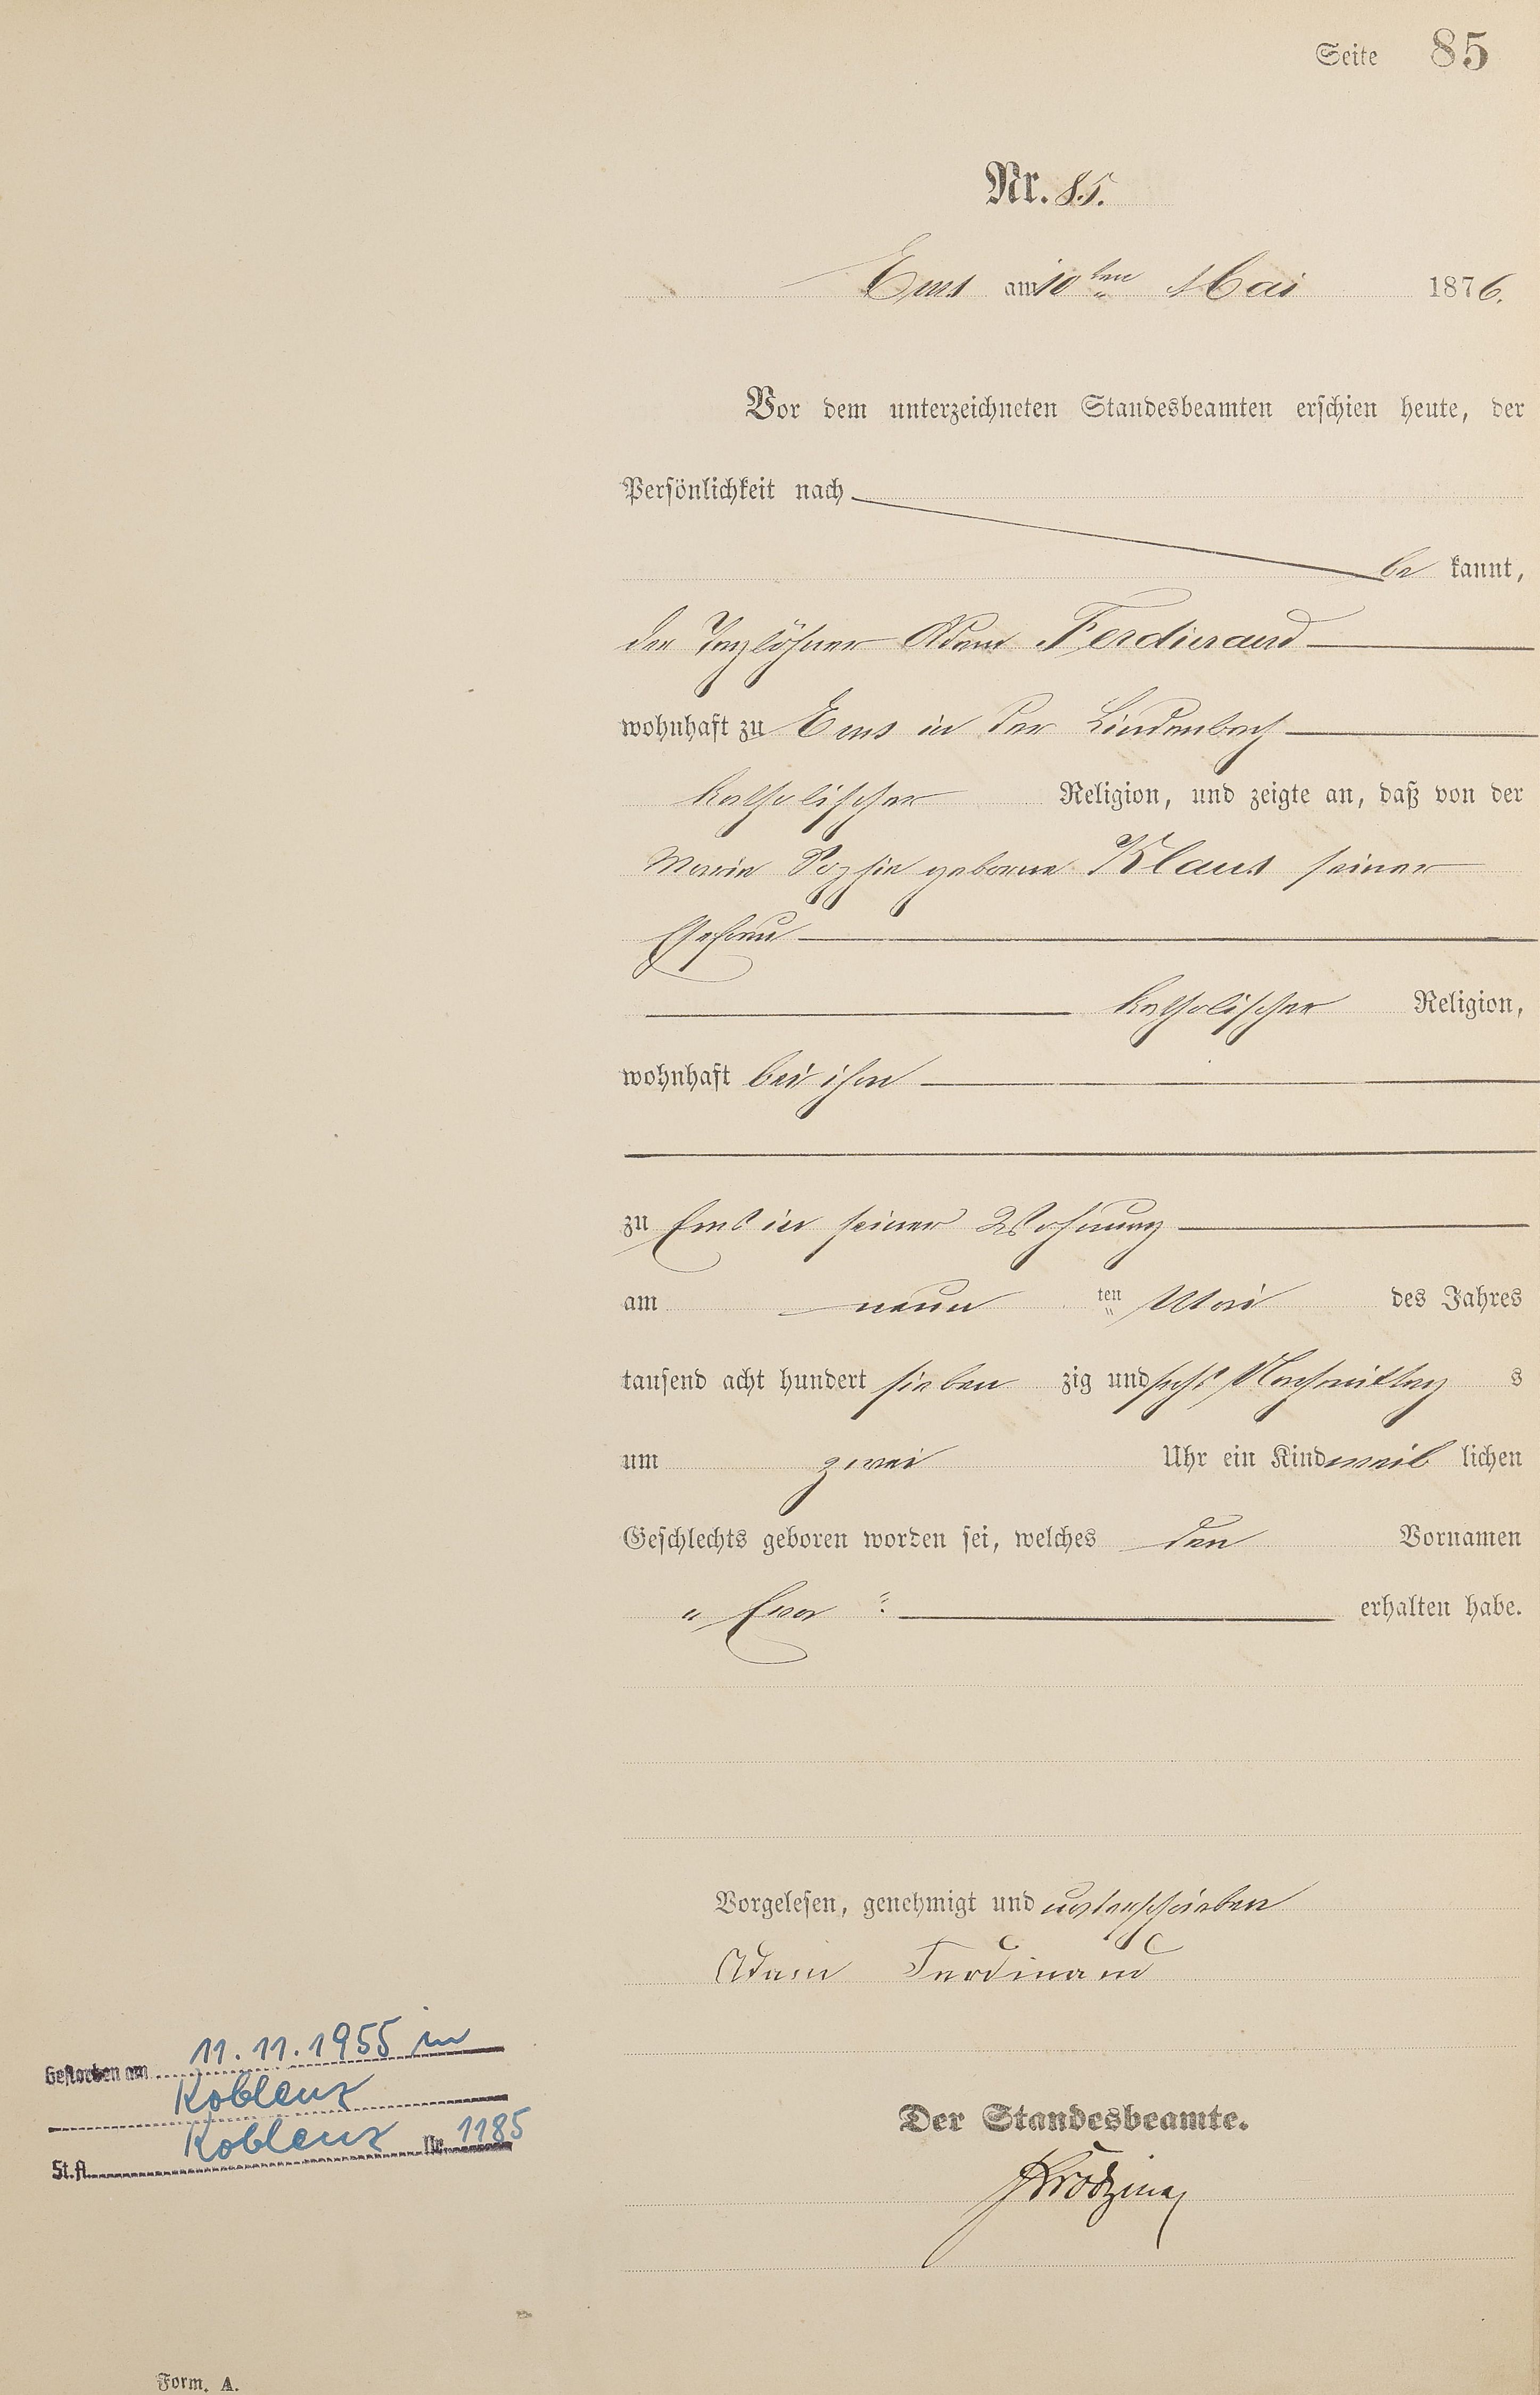 Seite 85
Nr. 85.
Ems am 10ten Mai 1876.
Vor dem unterzeichneten Standesbeamten erschien heute, der
Persönlichkeit nach
be kannt,
der Taglöhner Adam Ferdinand
wohnhaft zu Ems in der Lindenbach
katholischer Religion, und zeigte an, daß von der
Marie Sophie geborne Klaus seiner
Ehefrau
katholischer Religion,
wohnhaft bei ihm
zu Ems in seiner Wohnung
am neun ten Mai des Jahres
tausend acht hundert sieben zig und sechs Nachmittag s
um zwei Uhr ein Kind weib lichen
Geschlechts geboren worden sei, welches den Vornamen
"Eva". erhalten habe.
Vorgelesen, genehmigt und unterschrieben
Adam Ferdinand
Der Standesbeamte.
Gestorben am 11.11.1955 in
Koblenz
St.A. Koblenz Nr. 1185
Form. A.